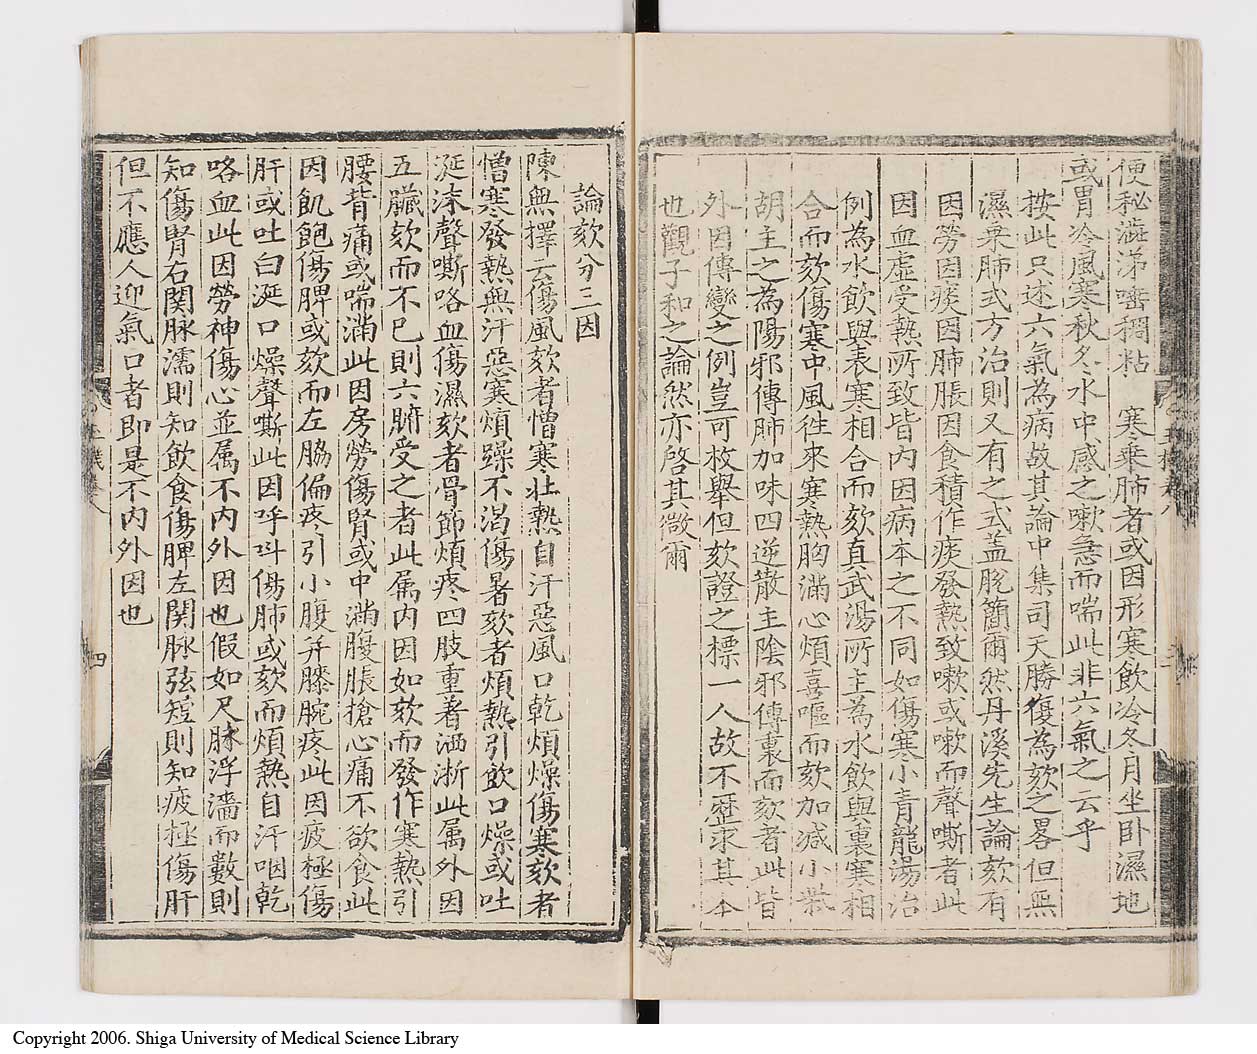 便秘澁涕嚏稠粘 寒乗肺者或因形寒飲冷冬月坐卧濕地
或冐冷風寒秋冬水中感之嗽急而喘此非六氣之云乎
按此只述六氣為病故其論中集司天勝復為欬之畧但無
濕乗肺式方治則又有之式盖脫簡爾然丹溪先生論欬有
因勞因痰因肺脹因食積作痰發熱致嗽或嗽而聲嘶者此
因血虛受熱所致皆内因病本之不同如傷寒小青龍湯治
例為水飲與表寒相合而欬真武湯所主為水飲與裏寒相
合而欬傷寒中風徃來寒熱胸滿心煩喜嘔而欬加減小柴
胡主之為陽邪傳肺加味四逆散主陰邪傳裏而欬者此皆
外因傳變之例豈可枚舉但欬證之標一人故不歷求其本
也觀子和之論然亦啓其微爾
論欬分三因
陳無擇云傷風欬者憎寒壮熱自汗惡風口乾煩燥傷寒欬者
憎寒發熱無汗惡寒煩躁不渴傷暑欬者煩熱引飲口燥或吐
涎沫聲嘶咯血傷濕欬者骨節煩疼四肢重著洒淅此属外因
五臟欬而不已則六腑受之者此属内因如欬而發作寒熱引
腰背痛或喘滿此因房勞傷腎或中滿腹脹搶心痛不欲食此
因飢飽傷脾或欬而左脇偏疼引小腹并膝腕疼此因疲極傷
肝或吐白涎口燥聲嘶此因呼呌傷肺或欬而煩熱自汗咽乾
咯血此因勞神傷心並属不内外因也假如尺脉浮濇而數則
知傷腎右関脉濡則知飲食傷脾左関脉弦短則知疲極傷肝
但不應人迎氣口者即是不内外因也
四